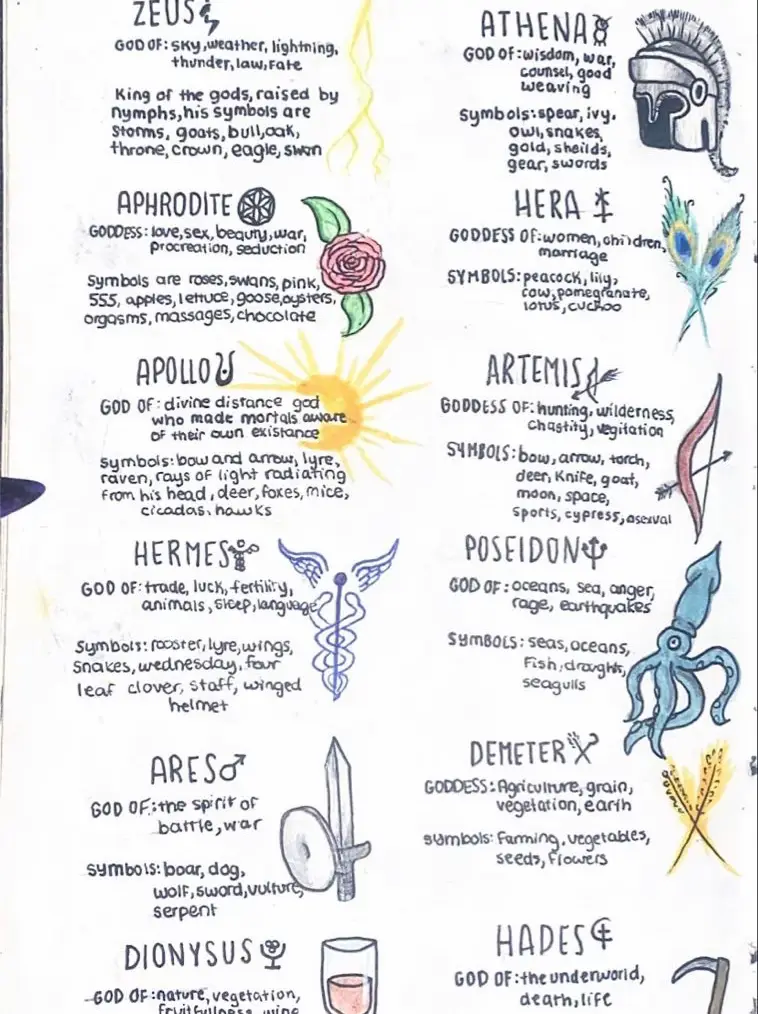 ZEUS
GOD OF: sky, weather, lightning,
thunder, law, Fate
King of the gods, raised by
nymphs, his symbols are
Storms, goats, bull, oak,
throne, crown, eagle, swan
APHRODITE
GODDESS: love, sex, beauty, war,
procreation, seduction
Symbols are roses, swans, pink,
555, apples, lettuce, goose, oysters,
orgasms, massages, chocolate
APOLLO
GOD OF: divine distance god
who made mortals aware
of their own existance
symbols: bow and arrow, lyre,
raven, rays of light radiating
from his head, deer, foxes, mice,
cicadas, hawks
HERMES
GOD OF: trade, luck, fertility,
animals, sleep, language
Symbols: rooster, lyre, wings,
snakes, wednesday, four
leaf clover, staff, winged
helmet
ARES
GOD OF: the spirit of
battle, war
symbols: boar, dog,
wolf, sword, vulture,
serpent
DIONYSUS
GOD OF: nature, vegetation,
fruitfullness, wine
ATHENA
GOD OF: wisdom, war,
counsel, good
weaving
Symbols: spear, ivy,
owl, snakes,
gold, sheilds,
gear, swords
HERA
GODDESS OF: women, children,
marriage
SYMBOLS: peacock, lily,
cow, pomegranate,
lotus, cuckoo
ARTEMIS
GODDESS OF: hunting, wilderness,
chastity, vegitation
SYMBOLS: bow, arrow, torch,
deer, Knife, goat,
moon, space,
sports, cypress, asexual
POSEIDON
GOD OF: oceans, sea, anger,
rage, earthquakes
SYMBOLS: seas, oceans,
Fish, draught,
seagulls
DEMETER
GODDESS: Agriculture, grain,
vegetation, earth
symbols: Farming, vegetables,
seeds, Flowers
HADES
GOD OF: the underworld,
death, life